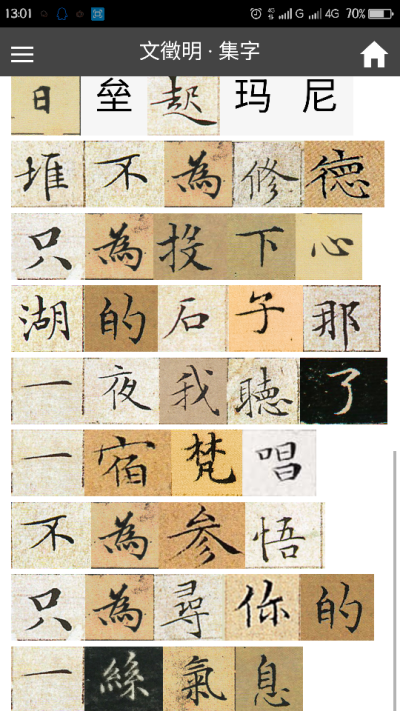 13:01 G 4G 70%
文徵明 · 集字
日垒起玛尼
堆不為修德
只為投下心
湖的石子那
一夜我聽了
一宿梵唱
不為参悟
只為尋你的
一絲氣息